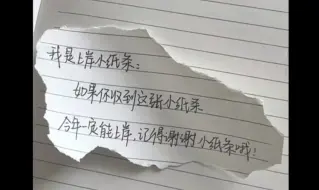 我是上岸小纸条:
如果你收到这张小纸条
今年一定能上岸,记得谢谢小纸条哦!